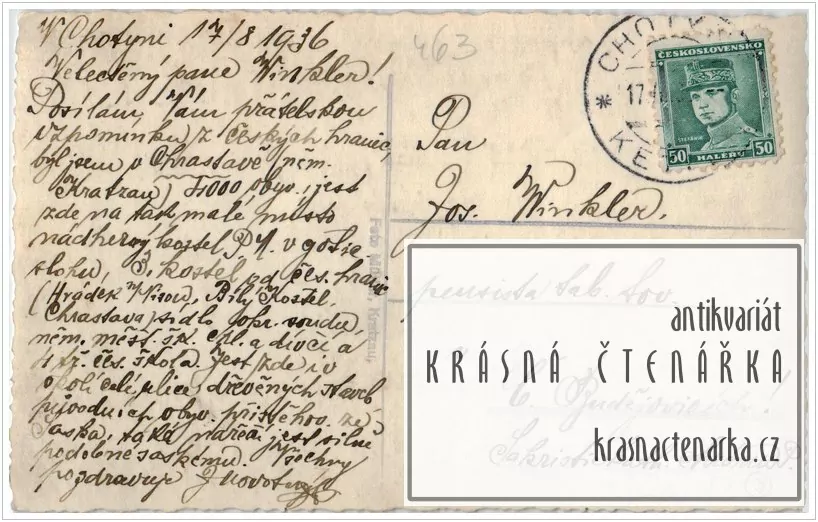 V Chotyni 17/8 1936
Velectěný pane Winkler!
Posílám Vám přátelskou
vzpomínku z českých hranic,
byl jsem v Chrastavě něm.
Kratzau) 4000 obyv. jest
zde na tak malé město
nádherný kostel P. M. v gotic
slohu, 3. kostel od čes. hranic
(Hrádek n/Nisou, Bílý Kostel
Chrastava) sídlo okr. soudu,
něm. měšť. šk. chl. a dívčí a
tř. čes. škola. Jest zde i v
okolí celé ulice dřevěných staveb
původních obyv. přistěhov. ze
Saska, také nářečí jest silně
podobné saskému. Všechny
pozdravuje J Novotný
463
Pan
Jos. Winkler.
pensista tab. tov.
Č. Budějovice!
Foto Kratzau
CHOTY
* 17
KE
ČESKOSLOVENSKO
ŠTEFÁNIK
50 HALÉŘŮ 50
antikvariát
KRÁSNÁ ČTENÁŘKA
krasnactenarka.cz